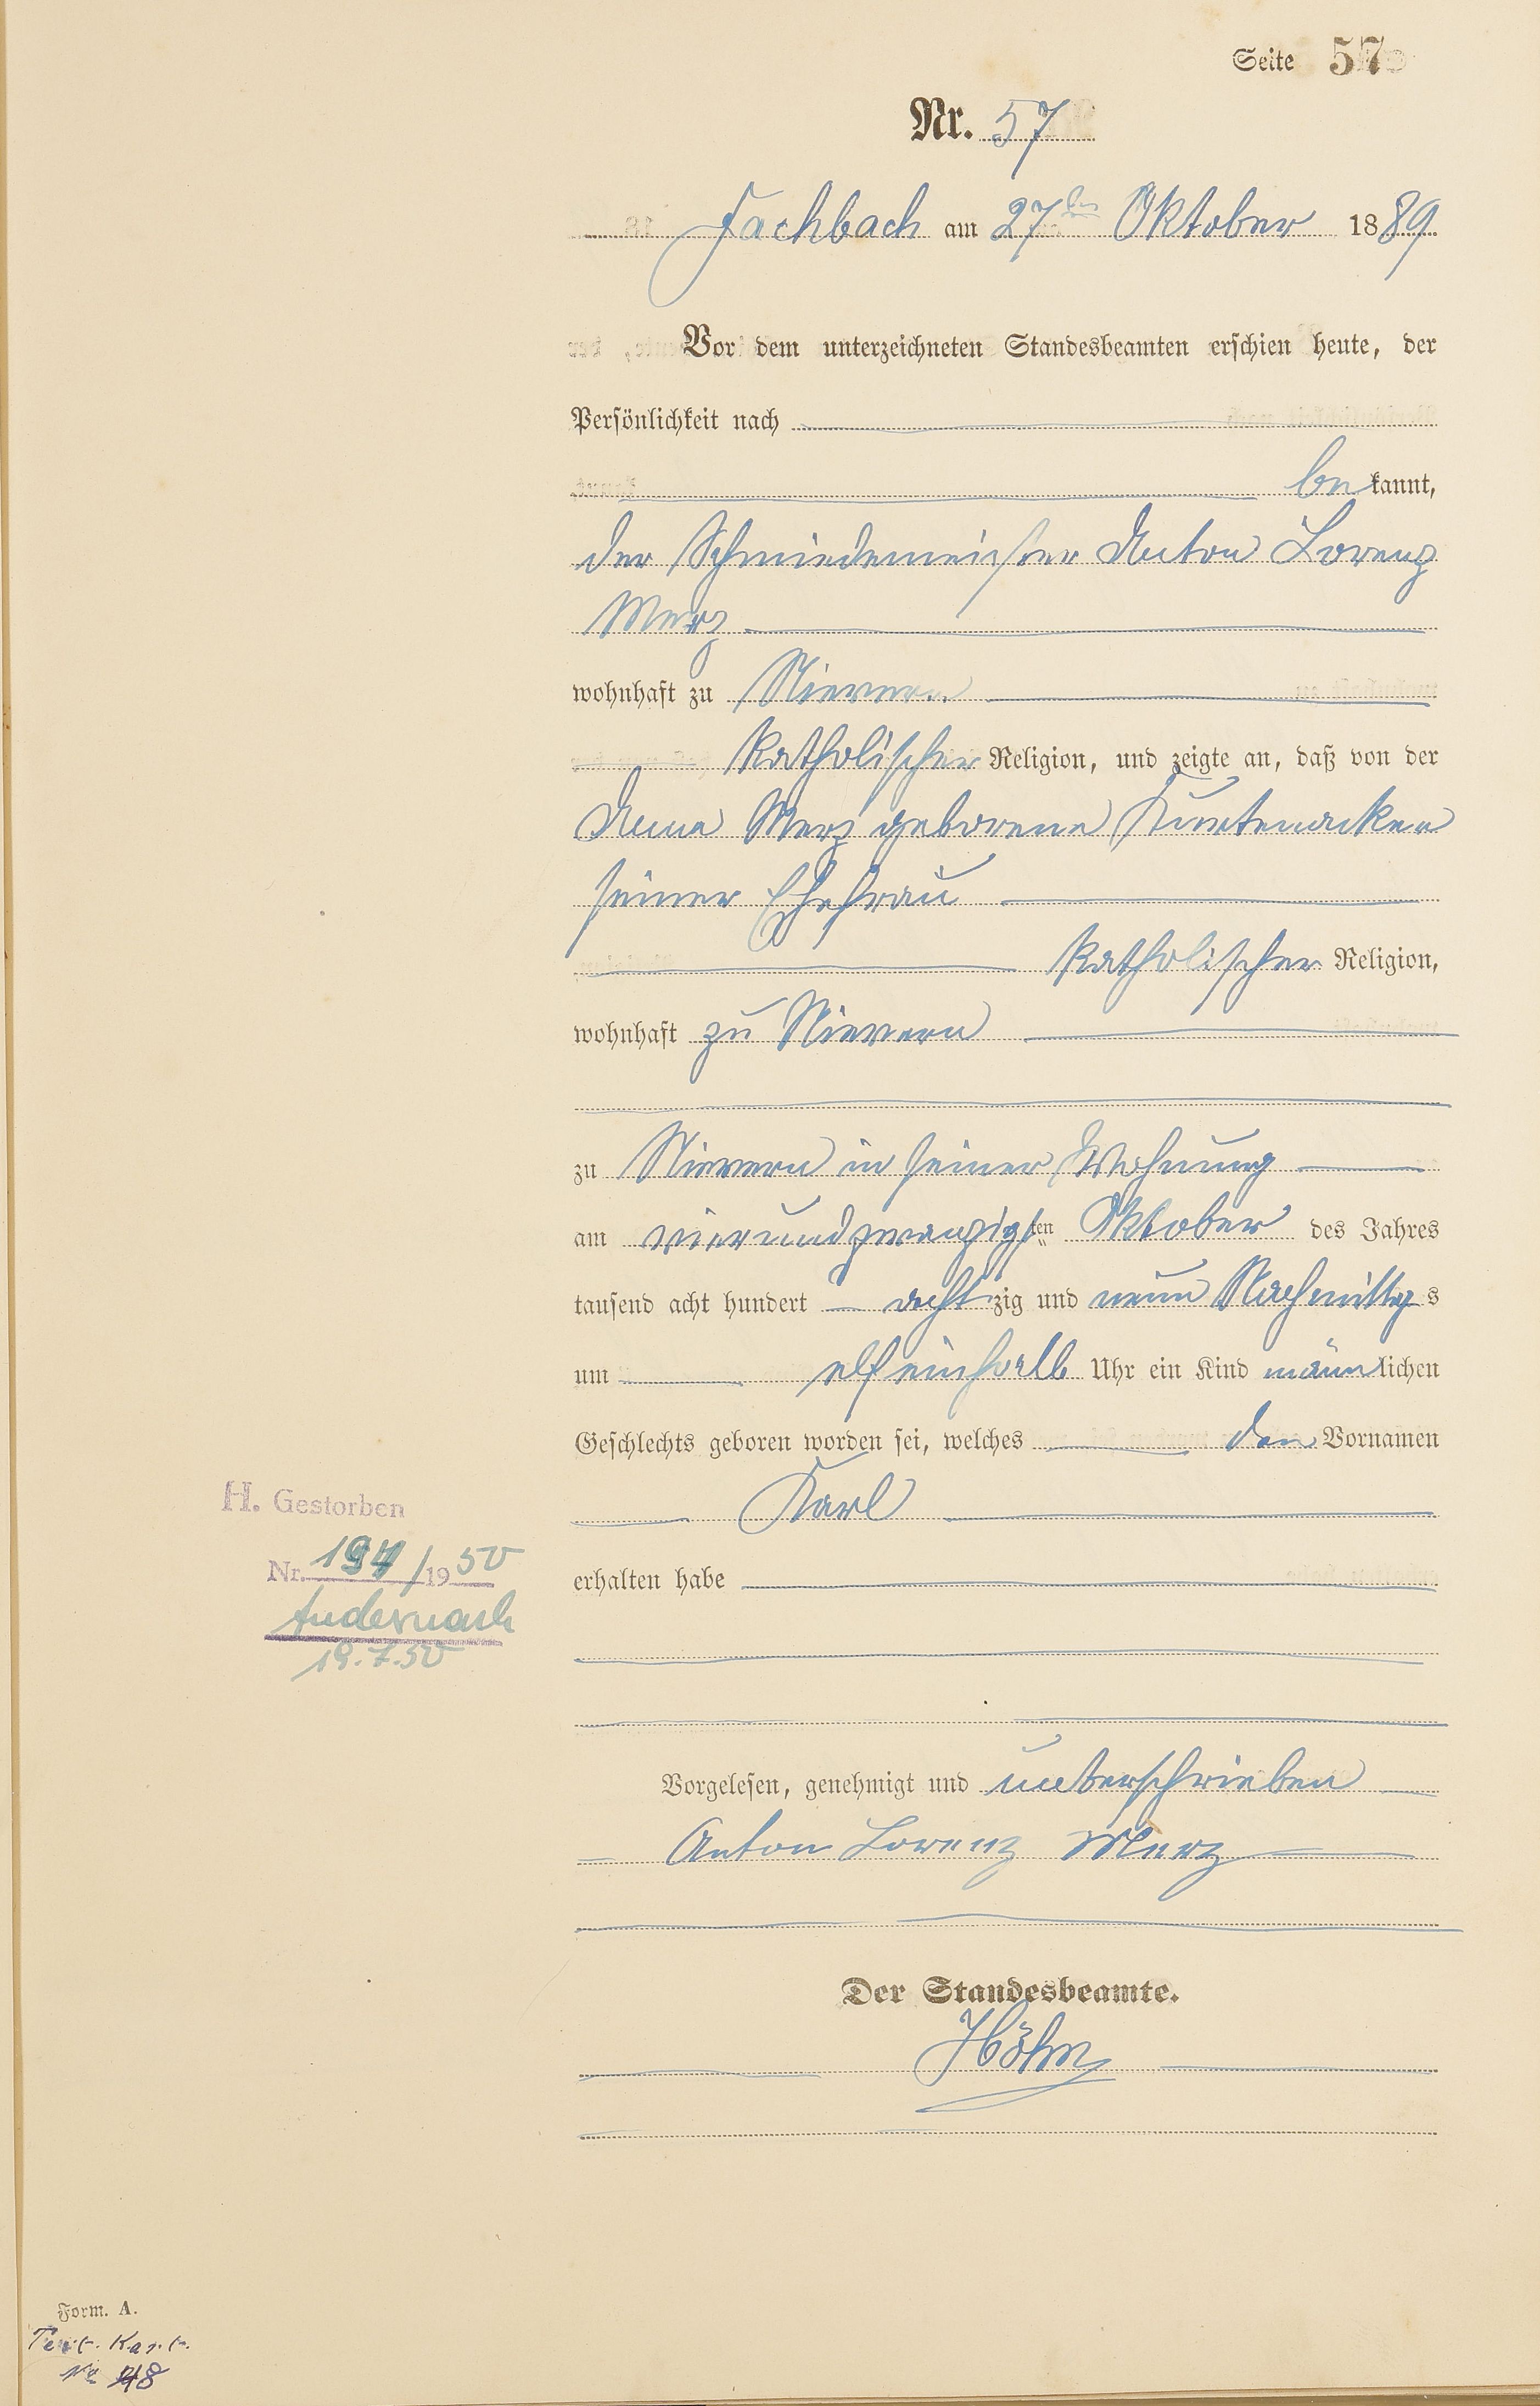 Seite 57
Nr. 57
Fachbach am 27ten Oktober 1889
Vor dem unterzeichneten Standesbeamten erschien heute, der
Persönlichkeit nach
bekannt,
der Schmiedemeister Anton Lorenz
Merz
wohnhaft zu Nievern
katholischer Religion, und zeigte an, daß von der
Anna Merz geborene Kurtenacker
seiner Ehefrau
katholischer Religion,
wohnhaft zu Nievern
zu Nievern in seiner Wohnung
am vierundzwanzigsten Oktober des Jahres
tausend acht hundert achtzig und neun Nachmittags
um elfeinhalb Uhr ein Kind männlichen
Geschlechts geboren worden sei, welches den Vornamen
Karl
H. Gestorben
Nr. /1950
erhalten habe
Andernach
19.7.50
Vorgelesen, genehmigt und unterschrieben
Anton Lorenz Merz
Der Standesbeamte.
Höhn
Form. A.
Kart.
48